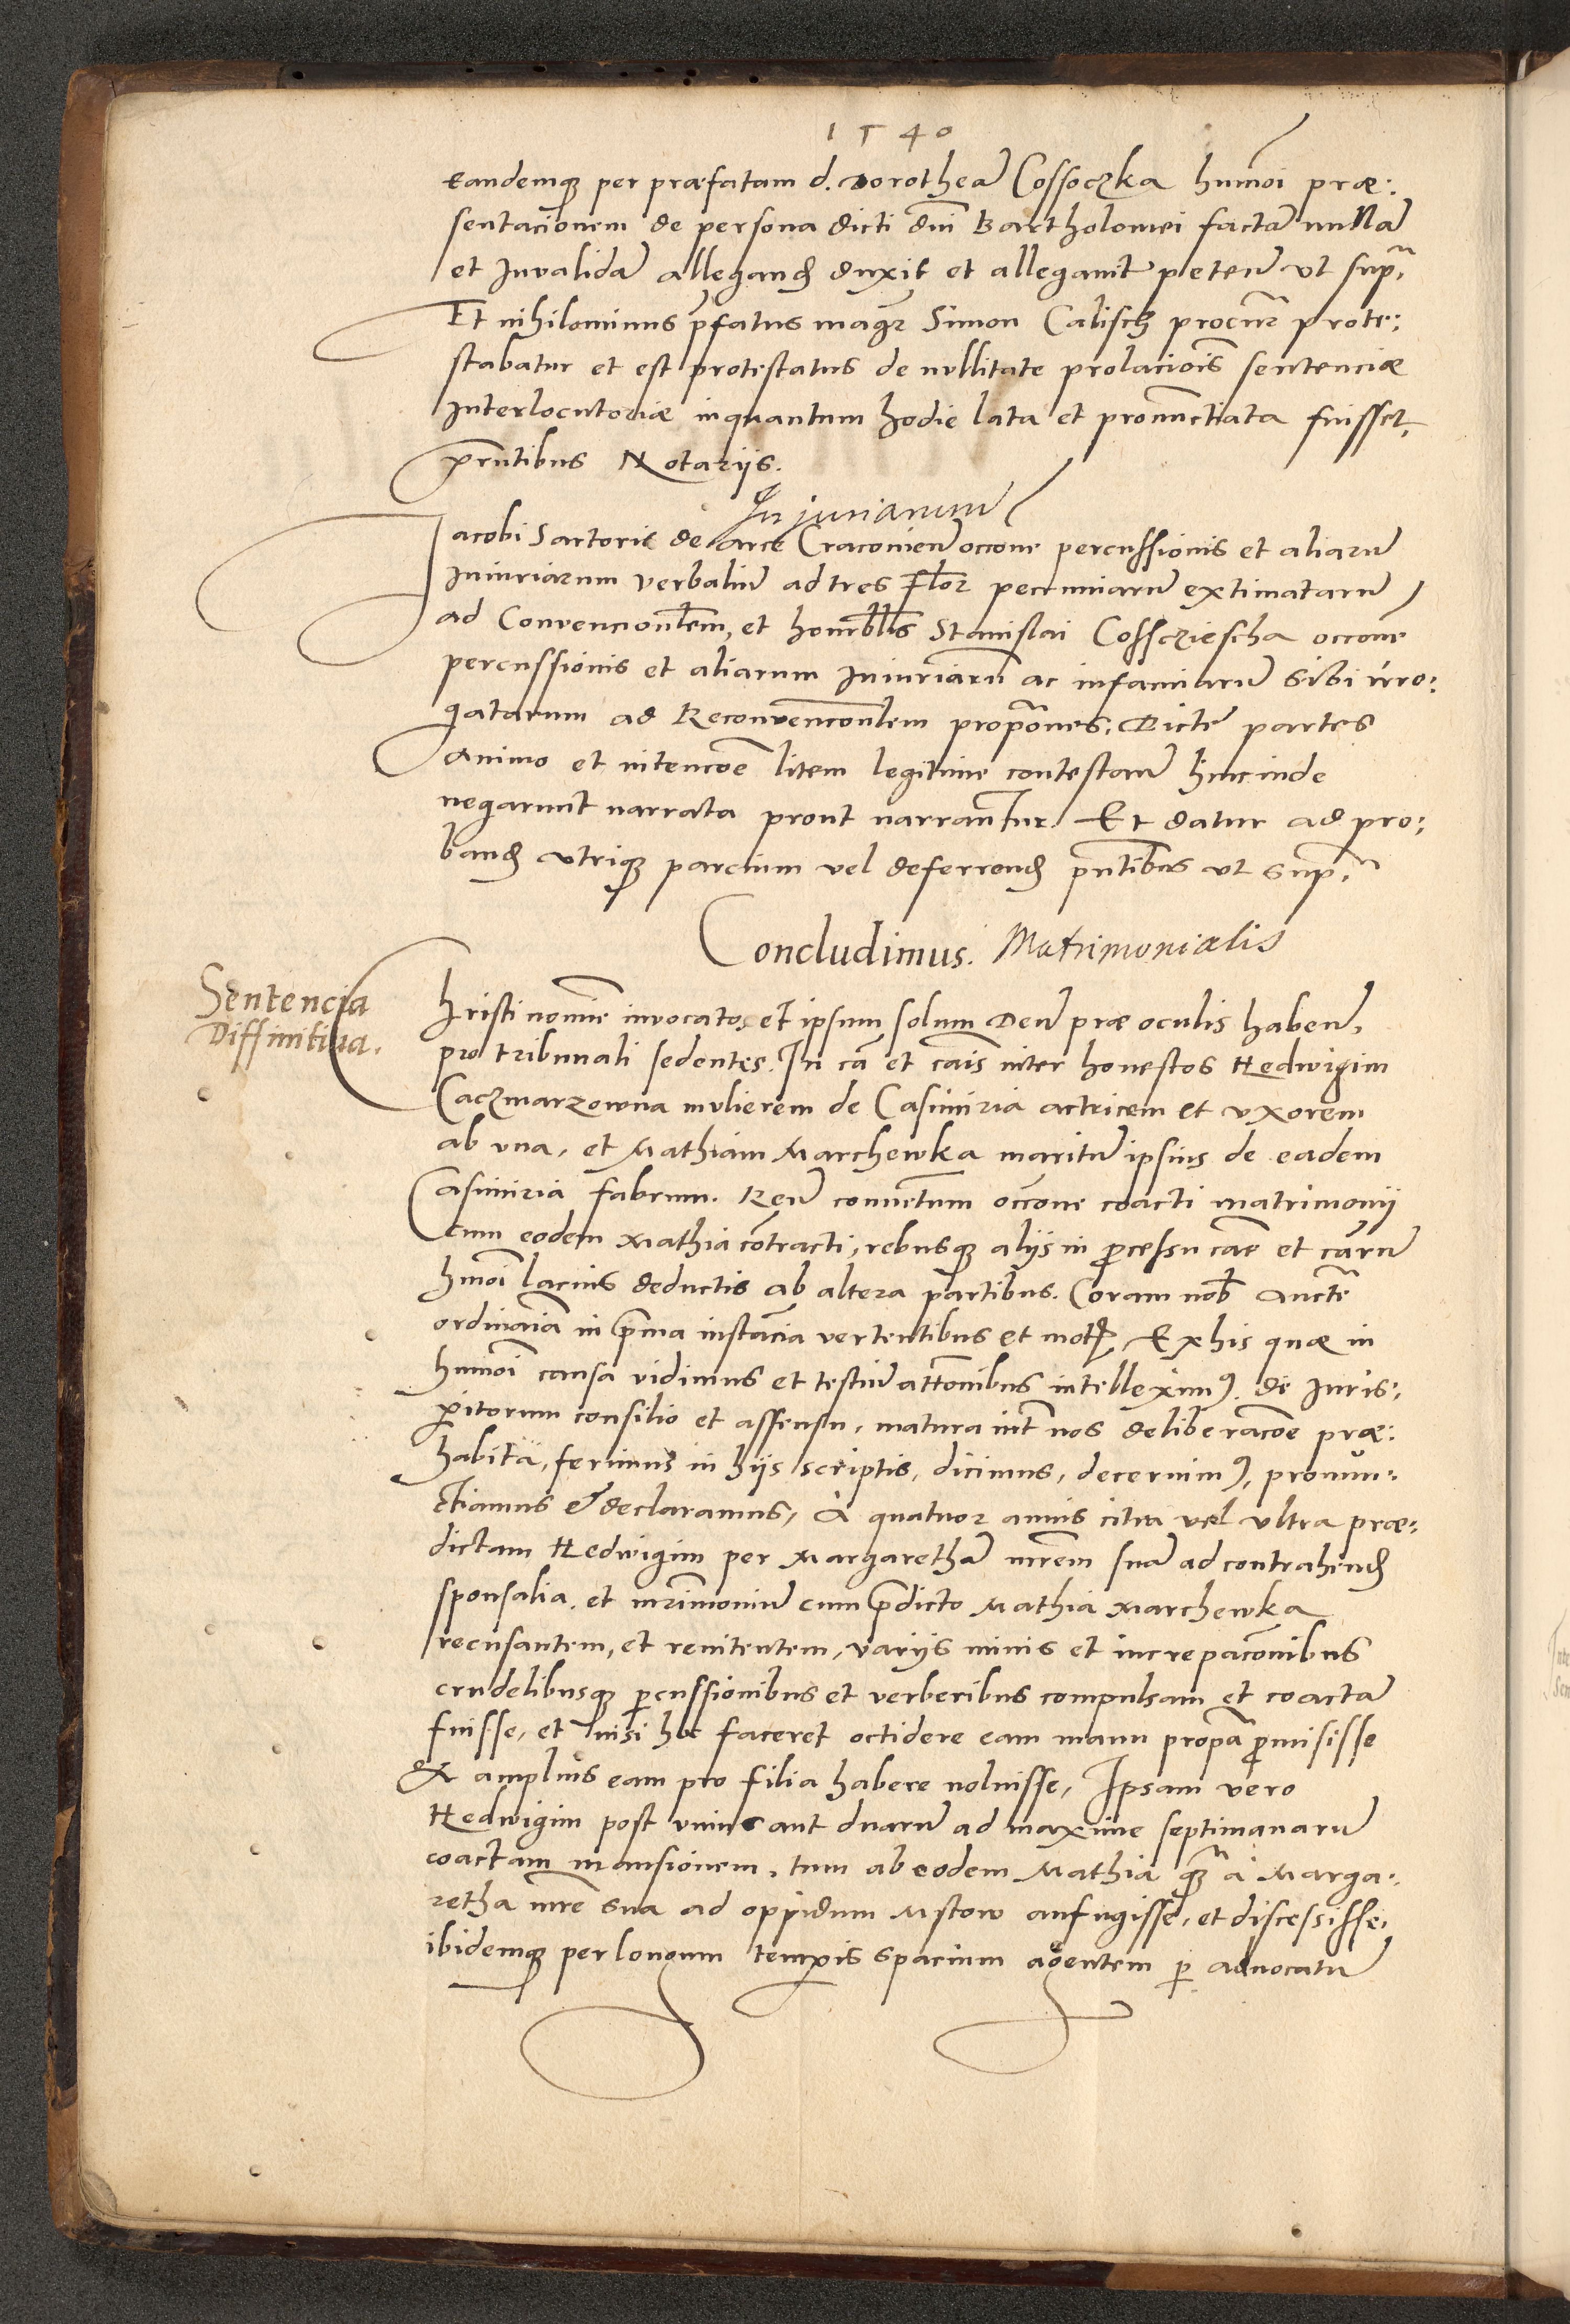 1540
eandemque per praefatam d. Dorotheā Cossoczka humōi prae:
sentacionem de persona dicti dni Bartholomei factā nullā
et Invalidā allegand duxit et allegavit peteñ vt supra
Et nihilominus pfatus magr Simon Calisch procur prote:
stabatur et est protestatus de nullitate prolaciōis sentenciæ
Interlocutoriæ inquantum hodie lata et pronunctiata fuisset,
prntibus Notariis.
Injuriarum
Jacobi Sartoris de arce Cracovien occone percussionis et aliarū
Iniuriarum verbaliū ad tres Flor pecuniarū extimatarū
ad Convencionlem, et honorblis Stanislai Cosscziescha occone
percussionis et aliarum Iniuriarū ac infamiarū sibi irro:
gatarum ad Reconvenconlem propones. Dicte partes
animo et intencōe litem legitime contestarū hincinde
negarunt narrata prout narrantur. Et datur ad pro:
band vtrique parcium vel deferrend pntibus vt supra
Concludimus. Matrimonialis
Sentencia
Diffinitiva.
Christi nomine invocato, et ipsum solum Deū prae oculis habeñ,
pro tribunali sedentes. In cā et cāis inter honestos Hedwigim
Caczmarzowna mulierem de Casimiria actricem et vxorem
ab vna, et Mathiam Marchewka maritū ipsius de eadem
Casimiria fabrum. Reū conuentum occone coacti matrimonii
cum eodem Mathia cōtracti, rebusque aliis in pcessu cāe et cārū
hmōi lacius deductis ab altera partibus. Coram nob aucte
ordinaria in prima instācia vertentibus et mot, Ex his quae in
humōi causa vidimus et testiū attōnibus intelleximus. de Iuris:
pitorum consilio et assensu, matura int nos deliberacōe prae:
habita, ferimus in hiis scriptis, dicimus, decernimus, pronun:
ctiamus & declaramus, A quatuor annis citra vel vltra prae:
dictam Hedwigim per Margarethā mrem suā ad contrahend
sponsalia et mrimoniū cum pdicto Mathia Marchewka
recusantem, et renitentem, variis minis et increpacōnibus
crudelibusque pcussionibus et verberibus compulsam et coactā
fuisse, et nisi hoc faceret occidere eam manu propa pmisisse
& amplius eam pro filia habere noluisse, Ipsam vero
Hedwigim post vnius aut duarū ad maxime septimanarū
coactam mansionem, tum ab eodem Mathia quam a Marga:
retha mre sua ad oppidum Mstow aufugisse, et discessisse,
ibidemque per longum tempis spacium agentem p advocatū